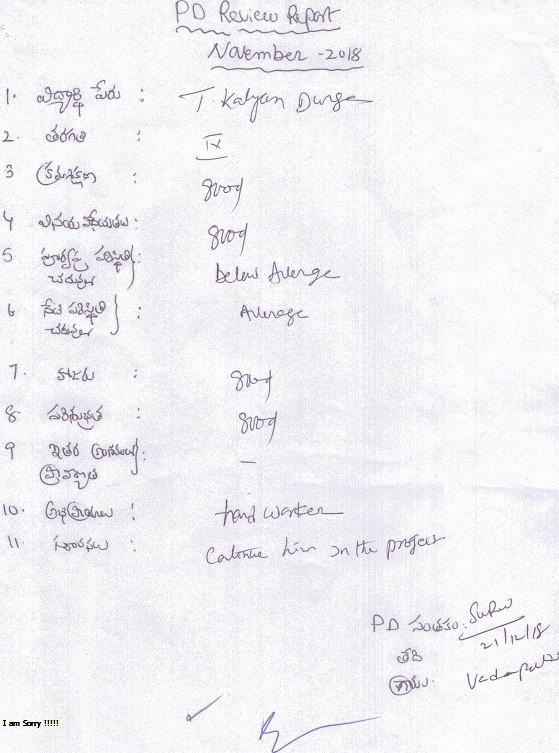 PD Review Report
November - 2018
1. విద్యార్థి పేరు : T. Kalyan Durga
2. తరగతి : IX
3 క్రమశిక్షణ : good
4 వినయ విధేయతలు : good
5 పూర్వపు పరిస్థితి : below Average
చదువులో
6 నేటి పరిస్థితి : Average
చదువులో
7. హాజరు : good
8. పరిశుభ్రత : good
9 ఇతర : –
ప్రావీణ్యత
10. అభిప్రాయాలు : hard worker
11. సూచనలు : Continue him on the project
PD సంతకం :
21/12/18
తేది
I am Sorry !!!!!